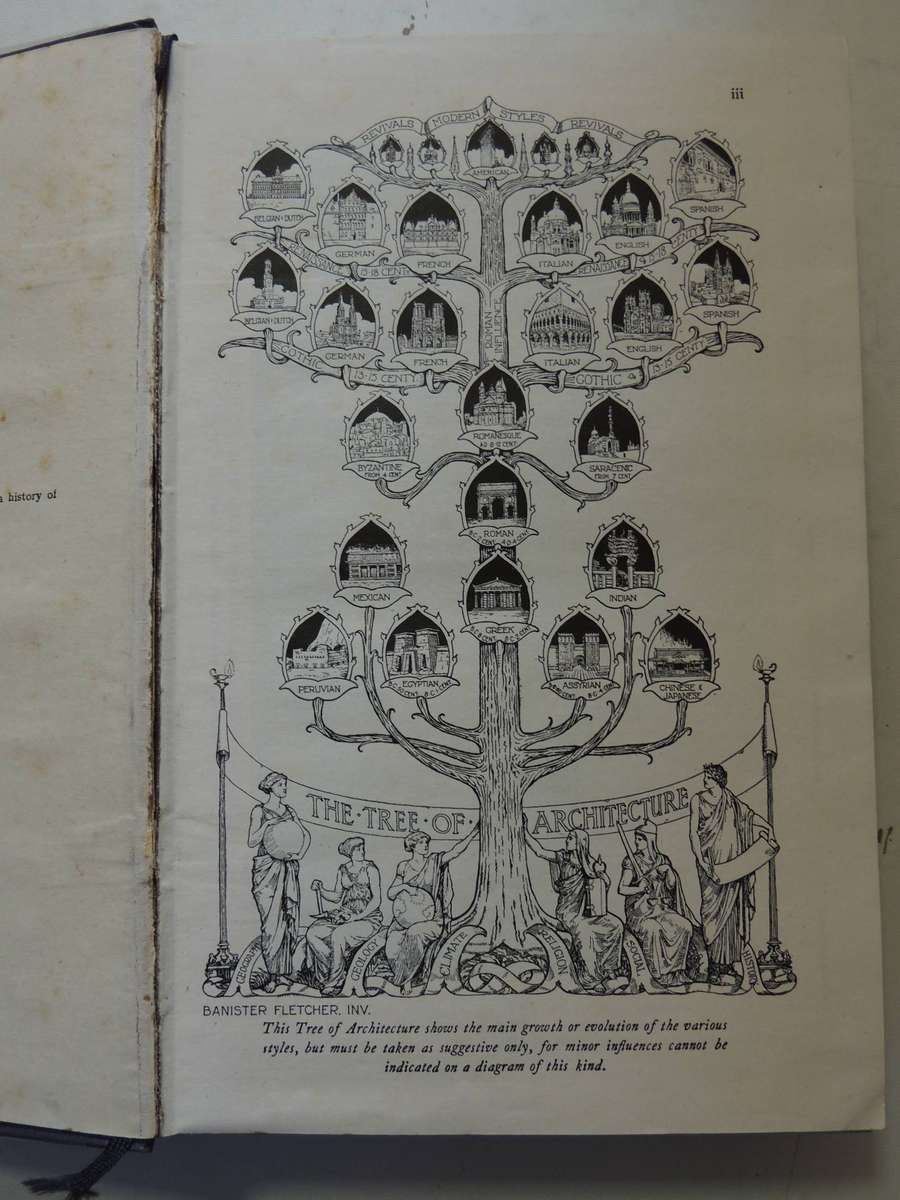 a history of
iii
REVIVALS MODERN STYLES REVIVALS
AMERICAN
BELGIAN & DUTCH
GERMAN
FRENCH
ITALIAN
ENGLISH
SPANISH
RENAISSANCE 15-18 CENTY
RENAISSANCE 15-18 CENTY
ROMAN INFLUENCE
BELGIAN & DUTCH
GERMAN
FRENCH
ITALIAN
ENGLISH
SPANISH
GOTHIC 13-15 CENTY
GOTHIC 13-15 CENTY
ROMANESQUE
BYZANTINE
FROM 4 CENT
SARACENIC
FROM 7 CENT
ROMAN
MEXICAN
INDIAN
GREEK
PERUVIAN
EGYPTIAN
ASSYRIAN
CHINESE &
JAPANESE
THE · TREE · OF · ARCHITECTURE
GEOGRAPHY
GEOLOGY
CLIMATE
RELIGION
SOCIAL
HISTORY
BANISTER FLETCHER, INV.
This Tree of Architecture shows the main growth or evolution of the various
styles, but must be taken as suggestive only, for minor influences cannot be
indicated on a diagram of this kind.